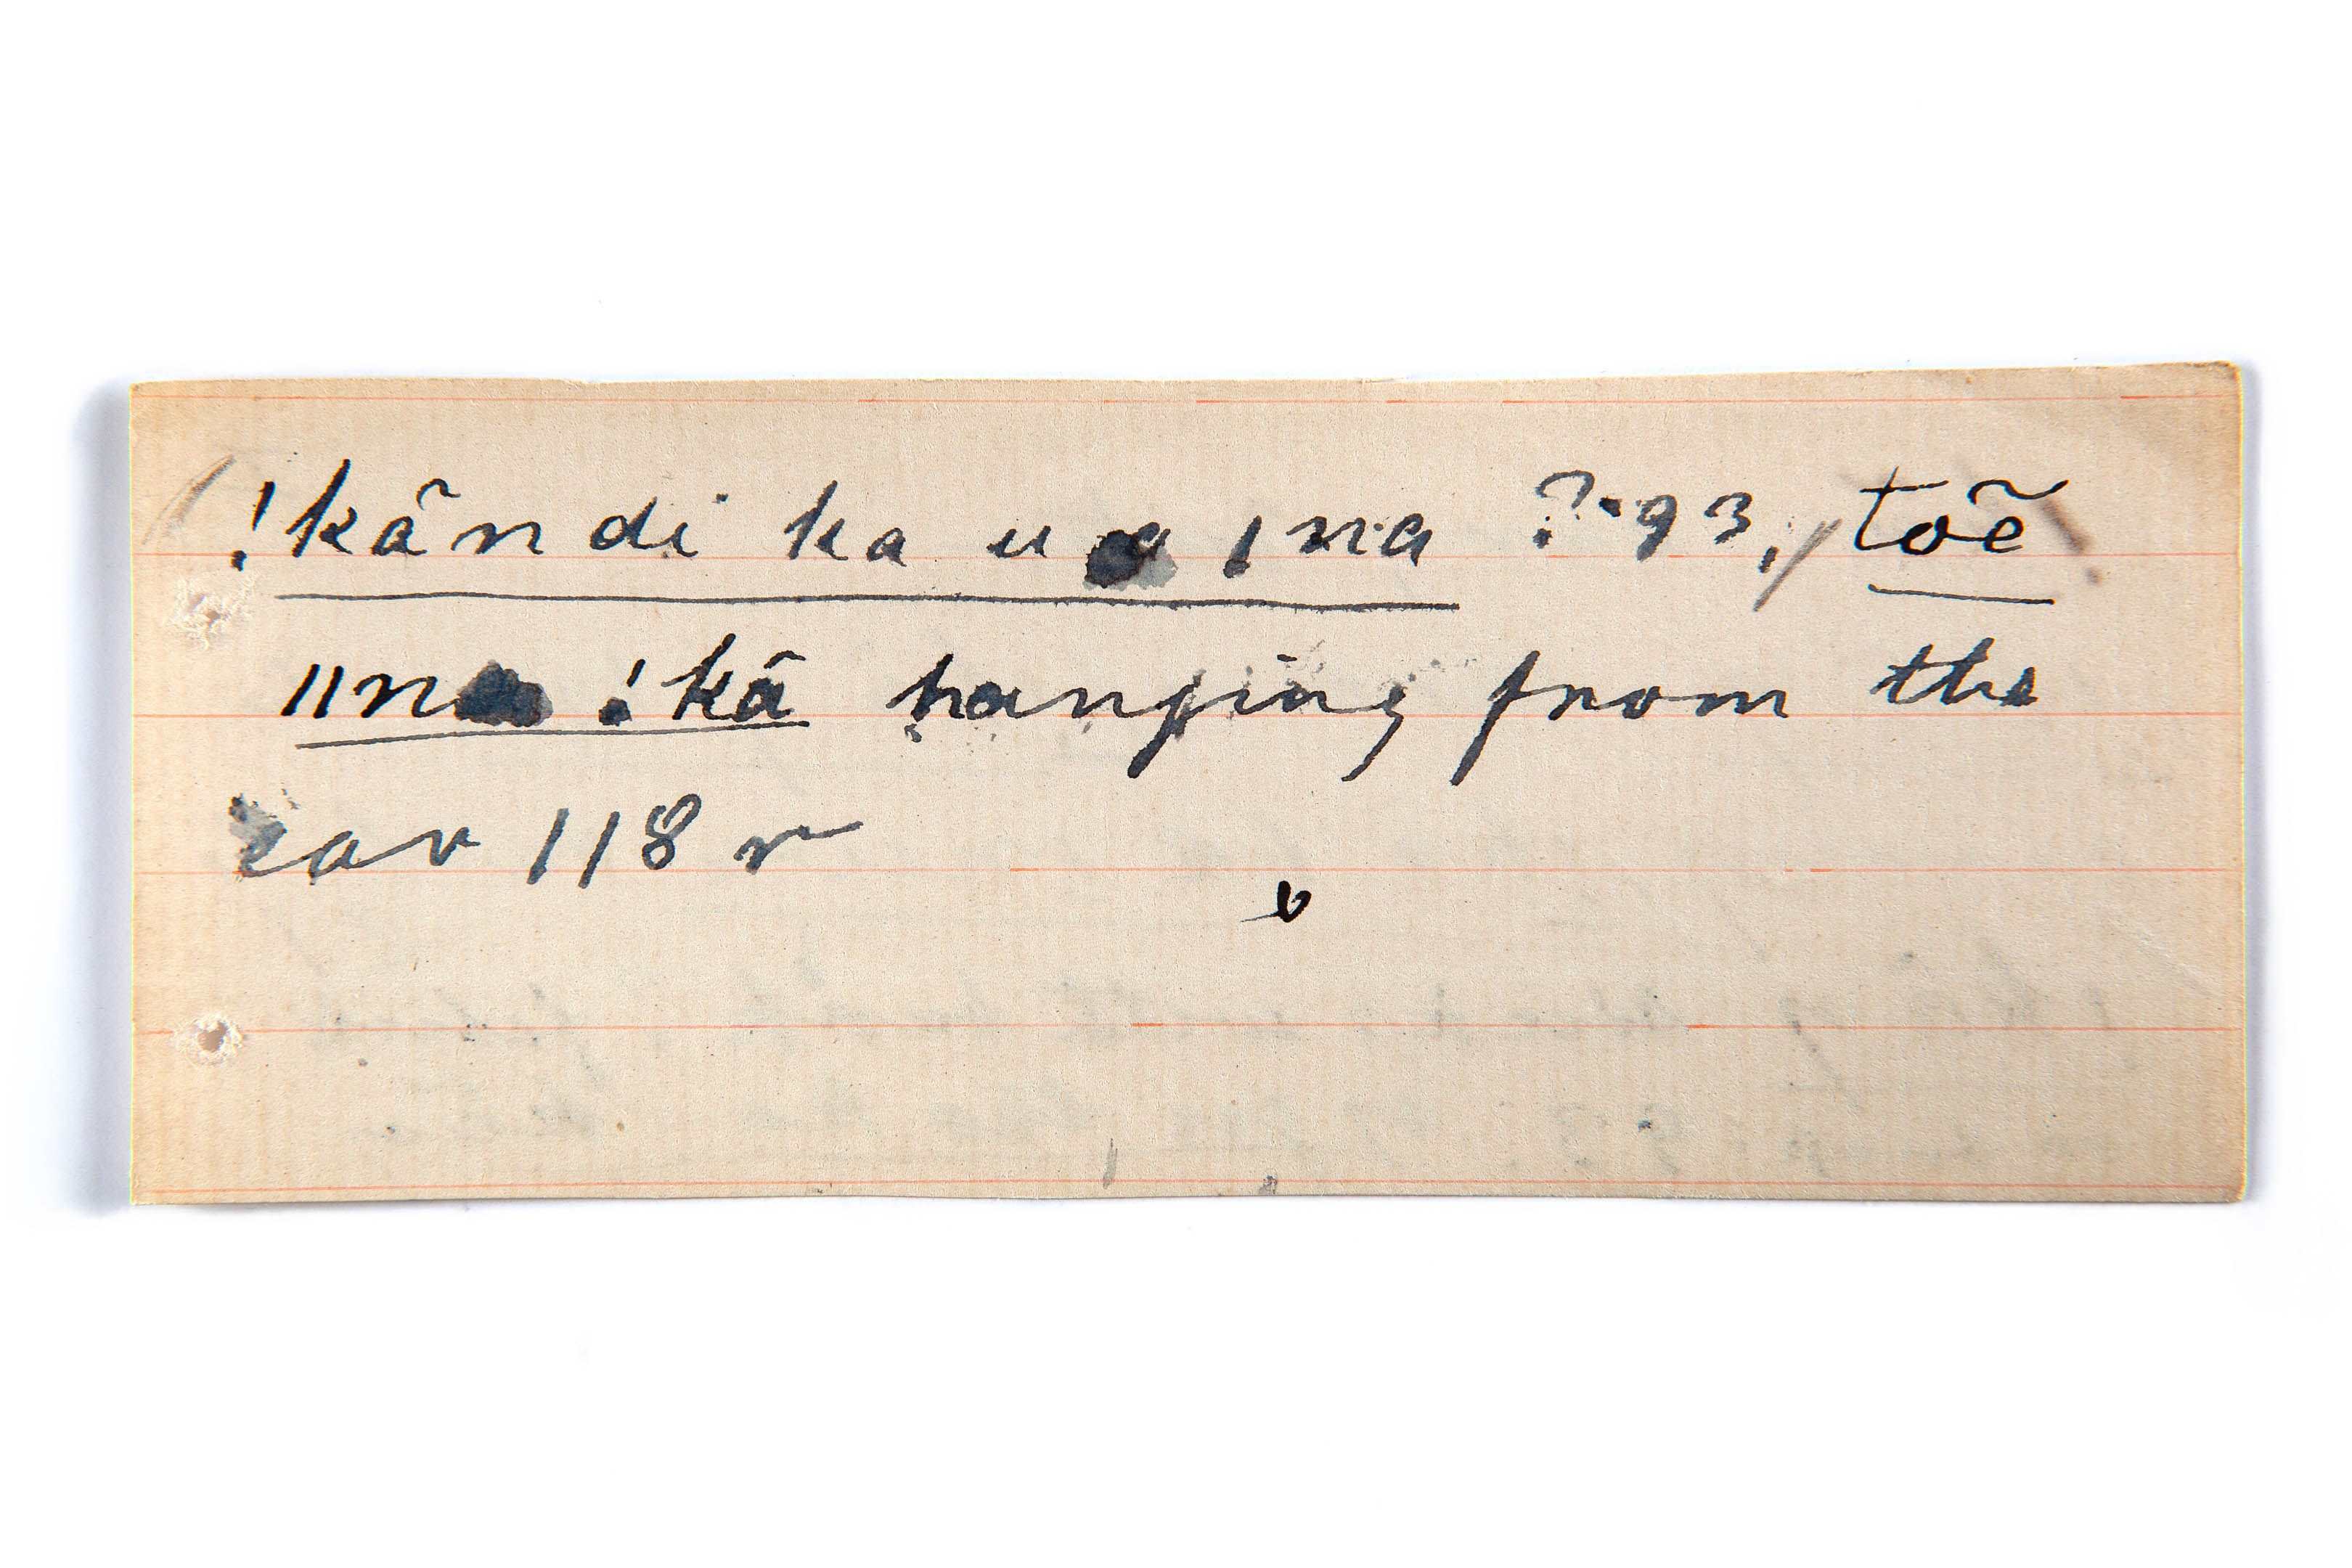 (!kãn di ka u a ǀna ? 93, / toẽ
ǁna !kã hanging from the
ear 118 r